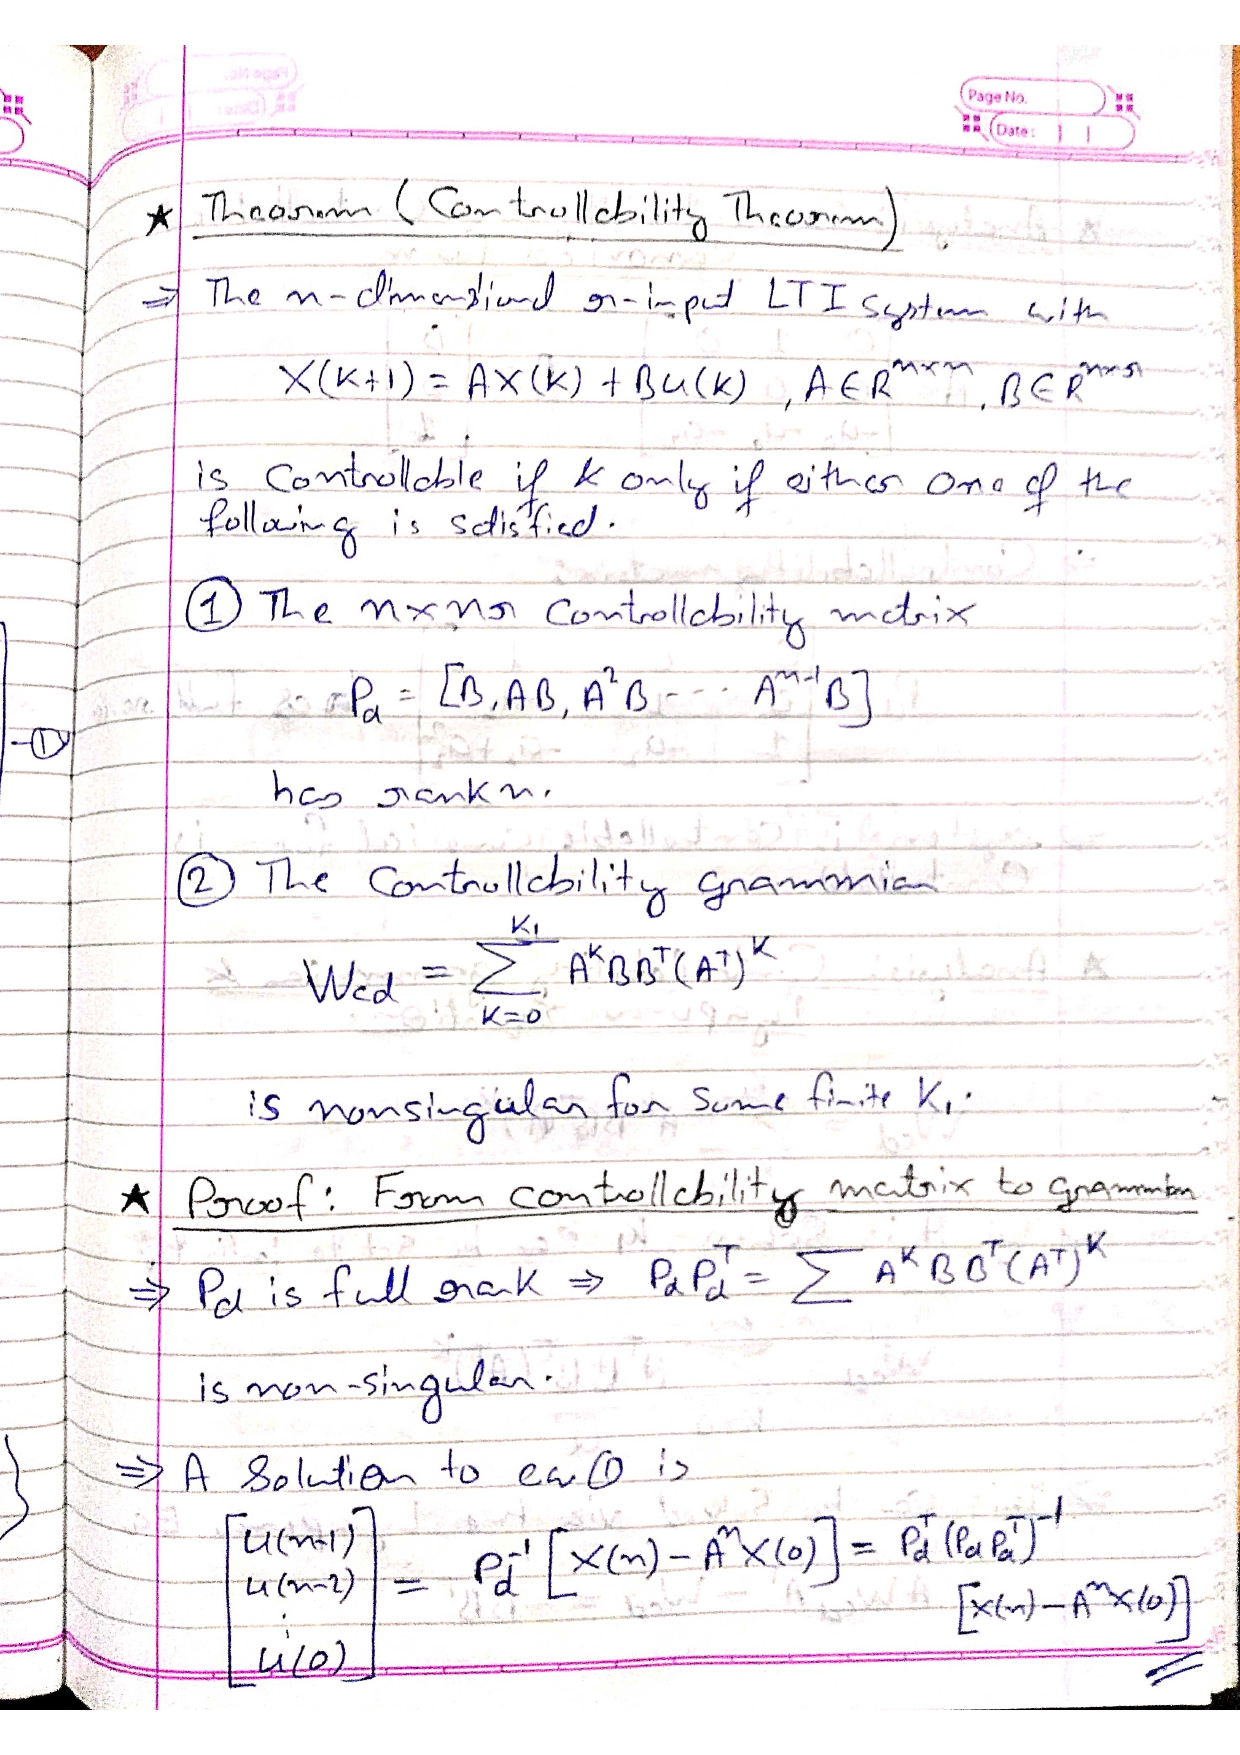 Page No.
Date:
★ Theorem (Controllability Theorem)
⇒ The n-dimensional r-input LTI System with
X(K+1) = AX(K) + BU(K) , A ∈ R^{n×n} , B ∈ R^{n×r}
is Controllable if & only if either one of the
following is satisfied.
① The n×nr Controllability matrix
P_d = [B, AB, A²B --- A^{n-1}B]
has rank n.
② The Controllability grammian
W_{cd} = \sum_{K=0}^{K_1} A^K BB^T (A^T)^K
is nonsingular for some finite K₁.
★ Proof: From controllability matrix to grammian
⇒ P_d is full rank ⇒ P_d P_d^T = \sum A^K BB^T (A^T)^K
is non-singular.
-①
⇒ A Solution to eq ① is
[U(n-1) U(n-2) ⋮ U(0)] = P_d^{-1} [X(n) - A^n X(0)] = P_d^T (P_d P_d^T)^{-1}
[X(n) - A^n X(0)]